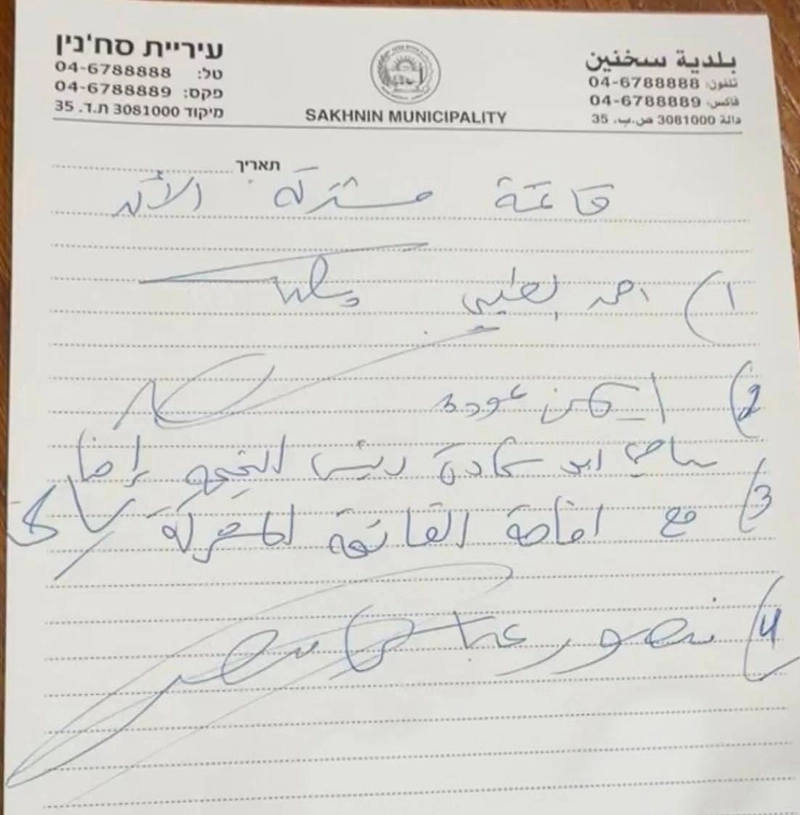 עיריית סח'נין
טל: 04-6788888
פקס: 04-6788889
מיקוד 3081000 ת.ד. 35
SAKHNIN MUNICIPALITY
بلدية سخنين
تلفون: 04-6788888
فاكس: 04-6788889
دالة 3081000 ص.ب. 35
תאריך
قائمة مشتركة الآن
1) احمد الطيبي
2) ايمن عودة
سامي ابو شحادة رئيس التجمع
3) مع اقامة القائمة المشتركة
4) منصور عباس